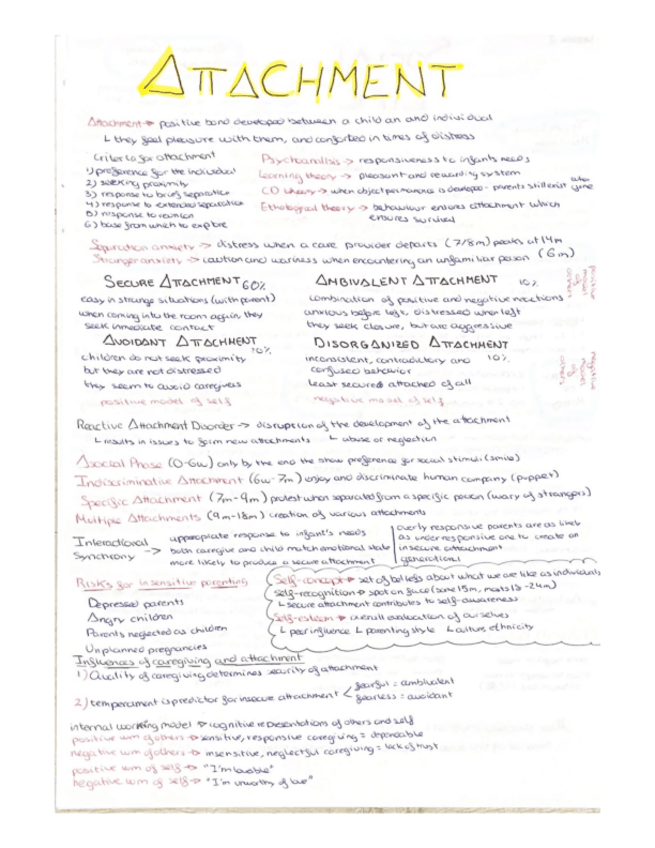 ATTACHMENT
Attachment → positive bond developed between a child an and individual
↳ they feel pleasure with them, and conforted in times of distress
Criteria for attachment
1) preference for the individual
2) seeking proximity
3) response to brief separation
4) response to extended separation
5) response to reunion
6) base from which to explore
Psychoanalisis → responsiveness to infants needs
Learning theory → pleasant and rewarding system
CD theory → when object permanence is develope - parents still exist when gone
Ethological theory → behaviour ensures attachment which
ensures survival
Separation anxiety → distress when a care provider departs (7/8m) peaks at 14m
Stranger anxiety → caution and wariness when encountering an unfamiliar person (6m)
SECURE ATTACHMENT 60%
easy in strange situations (with parent)
when coming into the room again, they
seek inmediate contact
AMBIVALENT ATTACHMENT 10%
combination of positive and negative reactions
anxious before left, distressed when left
they seek closure, but are aggressive
positive model of others
AVOIDANT ATTACHMENT
children do not seek proximity
but they are not distressed
they seem to avoid caregivers
positive model of self
DISORGANIZED ATTACHMENT
inconsistent, contradictory and 10%
confused behavior
Least secured attached of all
negative model of self
negative model of others
Reactive Attachment Disorder → disruption of the development of the attachment
↳ results in issues to form new attachments ↳ abuse or neglection
Asocial Phase (0-6w) only by the end the show preference for social stimuli (smile)
Indiscriminative Attachment (6w-7m) enjoy and discriminate human company (puppet)
Specific Attachment (7m-9m) protest when separated from a specific person (wary of strangers)
Multiple Attachments (9m-18m) creation of various attachments
Interactional Synchrony →
appropriate response to infant's needs
both caregive and child match emotional state
more likely to produce a secure attachment
overly responsive parents are as likely
as underresponsive one to create an
insecure attachment
Risks for insensitive parenting
Depressed parents
Angry children
Parents neglected as children
Unplanned pregnancies
Self-concept → set of beliefs about what we are like as individuals
Self-recognition → spot on face (some 15m, most 18-24m)
↳ secure attachment contributes to self-awareness
Self-esteem → overall evaluation of ourselves
↳ peer influence ↳ parenting style ↳ culture, ethnicity
Influences of caregiving and attachment
1) Quality of caregiving determines security of attachment
2) temperament is predictor for insecure attachment < fearful = ambivalent
fearless = avoidant
internal working model → cognitive representations of others and self
positive wm of others → sensitive, responsive caregiving = dependable
negative wm of others → insensitive, neglectful caregiving = lack of trust
positive wm of self → "I'm lovable"
negative wm of self → "I'm unworthy of love"